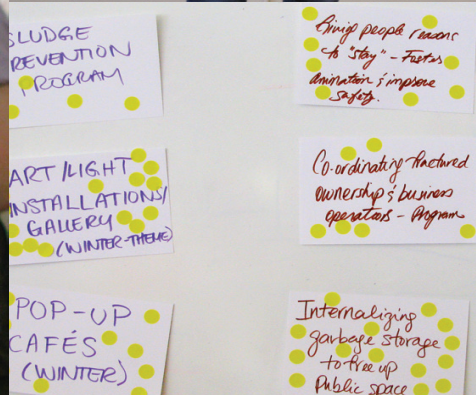 SLUDGE
REVENTION
PROGRAM
ART/LIGHT
INSTALLATIONS/
GALLERY
(WINTER-THEME)
POP-UP
CAFÉS
(WINTER)
Giving people reasons
to "stay" - Foster
animation & improve
safety.
Co-ordinating fractured
ownership & business
operations - Program
Internalizing
garbage storage
to free up
Public space